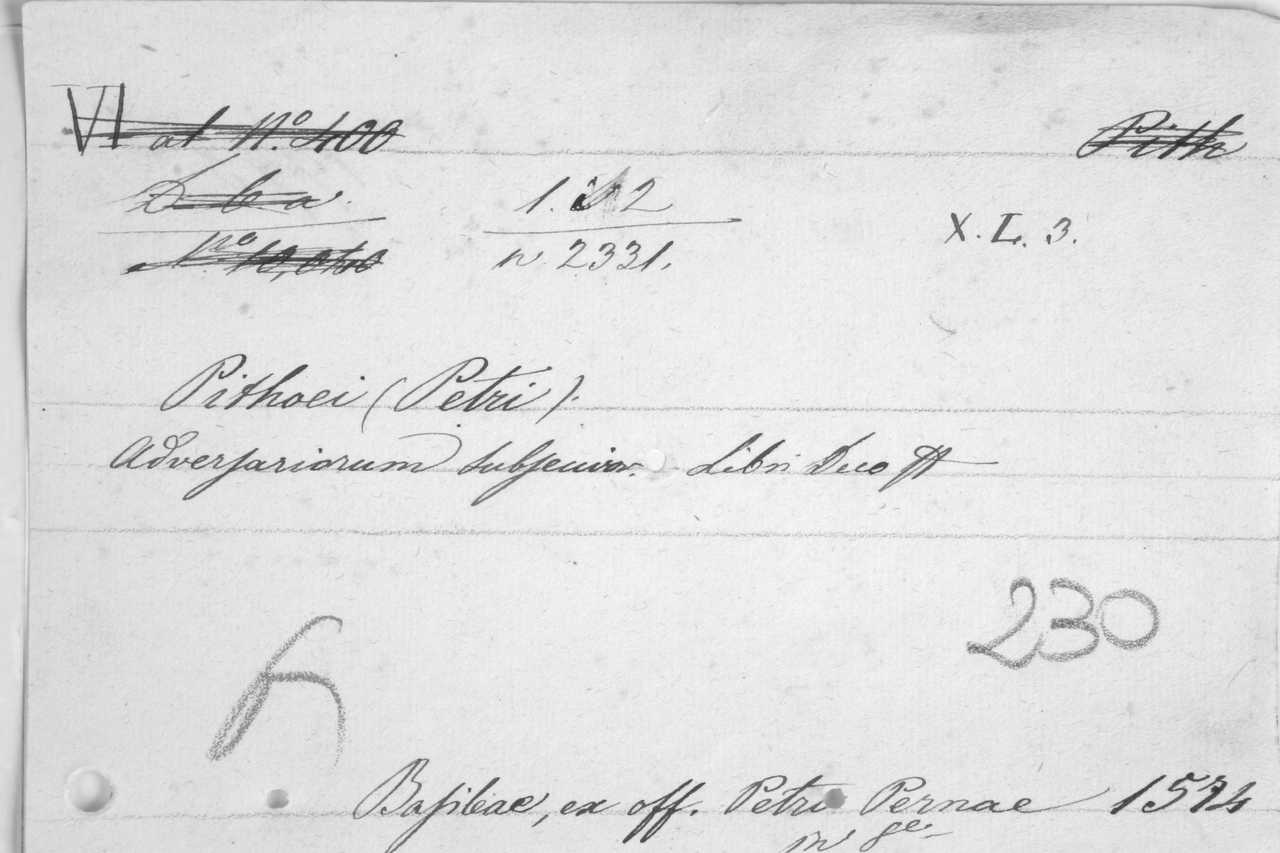 VI at Nº 400 Pith
D b a 1. 2
Nº n. 2331. X. L. 3.
Pithoei (Petri).
Adversariorum subseciv. Libri Duo
230
h
Basileae, ex off. Petri Pernae 1574
in 8º